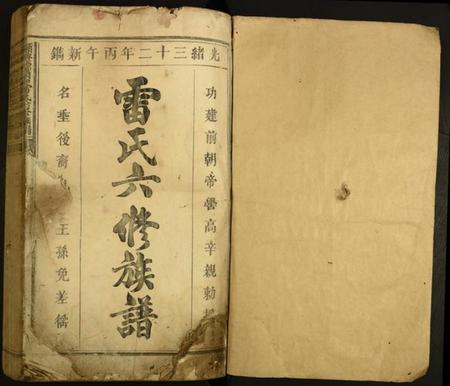 光緒三十二年丙午新鐫
功建前朝帝嚳高辛親勅
雷氏六修族譜
名垂後裔
王孫免差徭